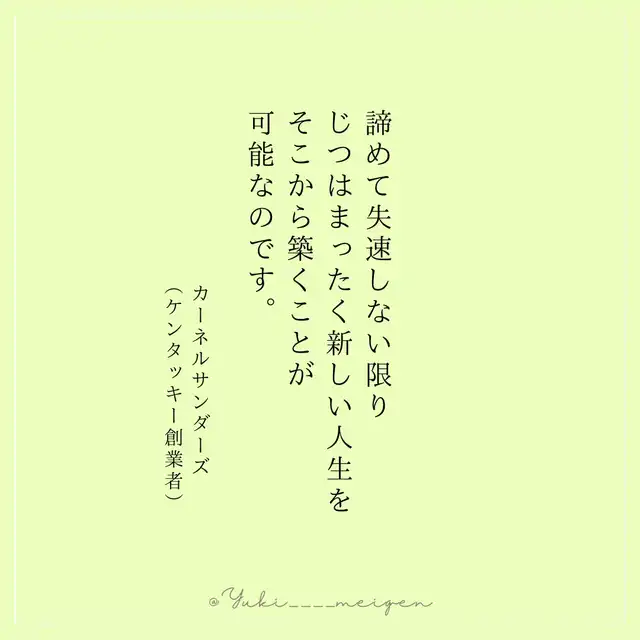 諦めて失速しない限り
じつはまったく新しい人生を
そこから築くことが
可能なのです。
カーネルサンダーズ
（ケンタッキー創業者）
@Yuki____meigen